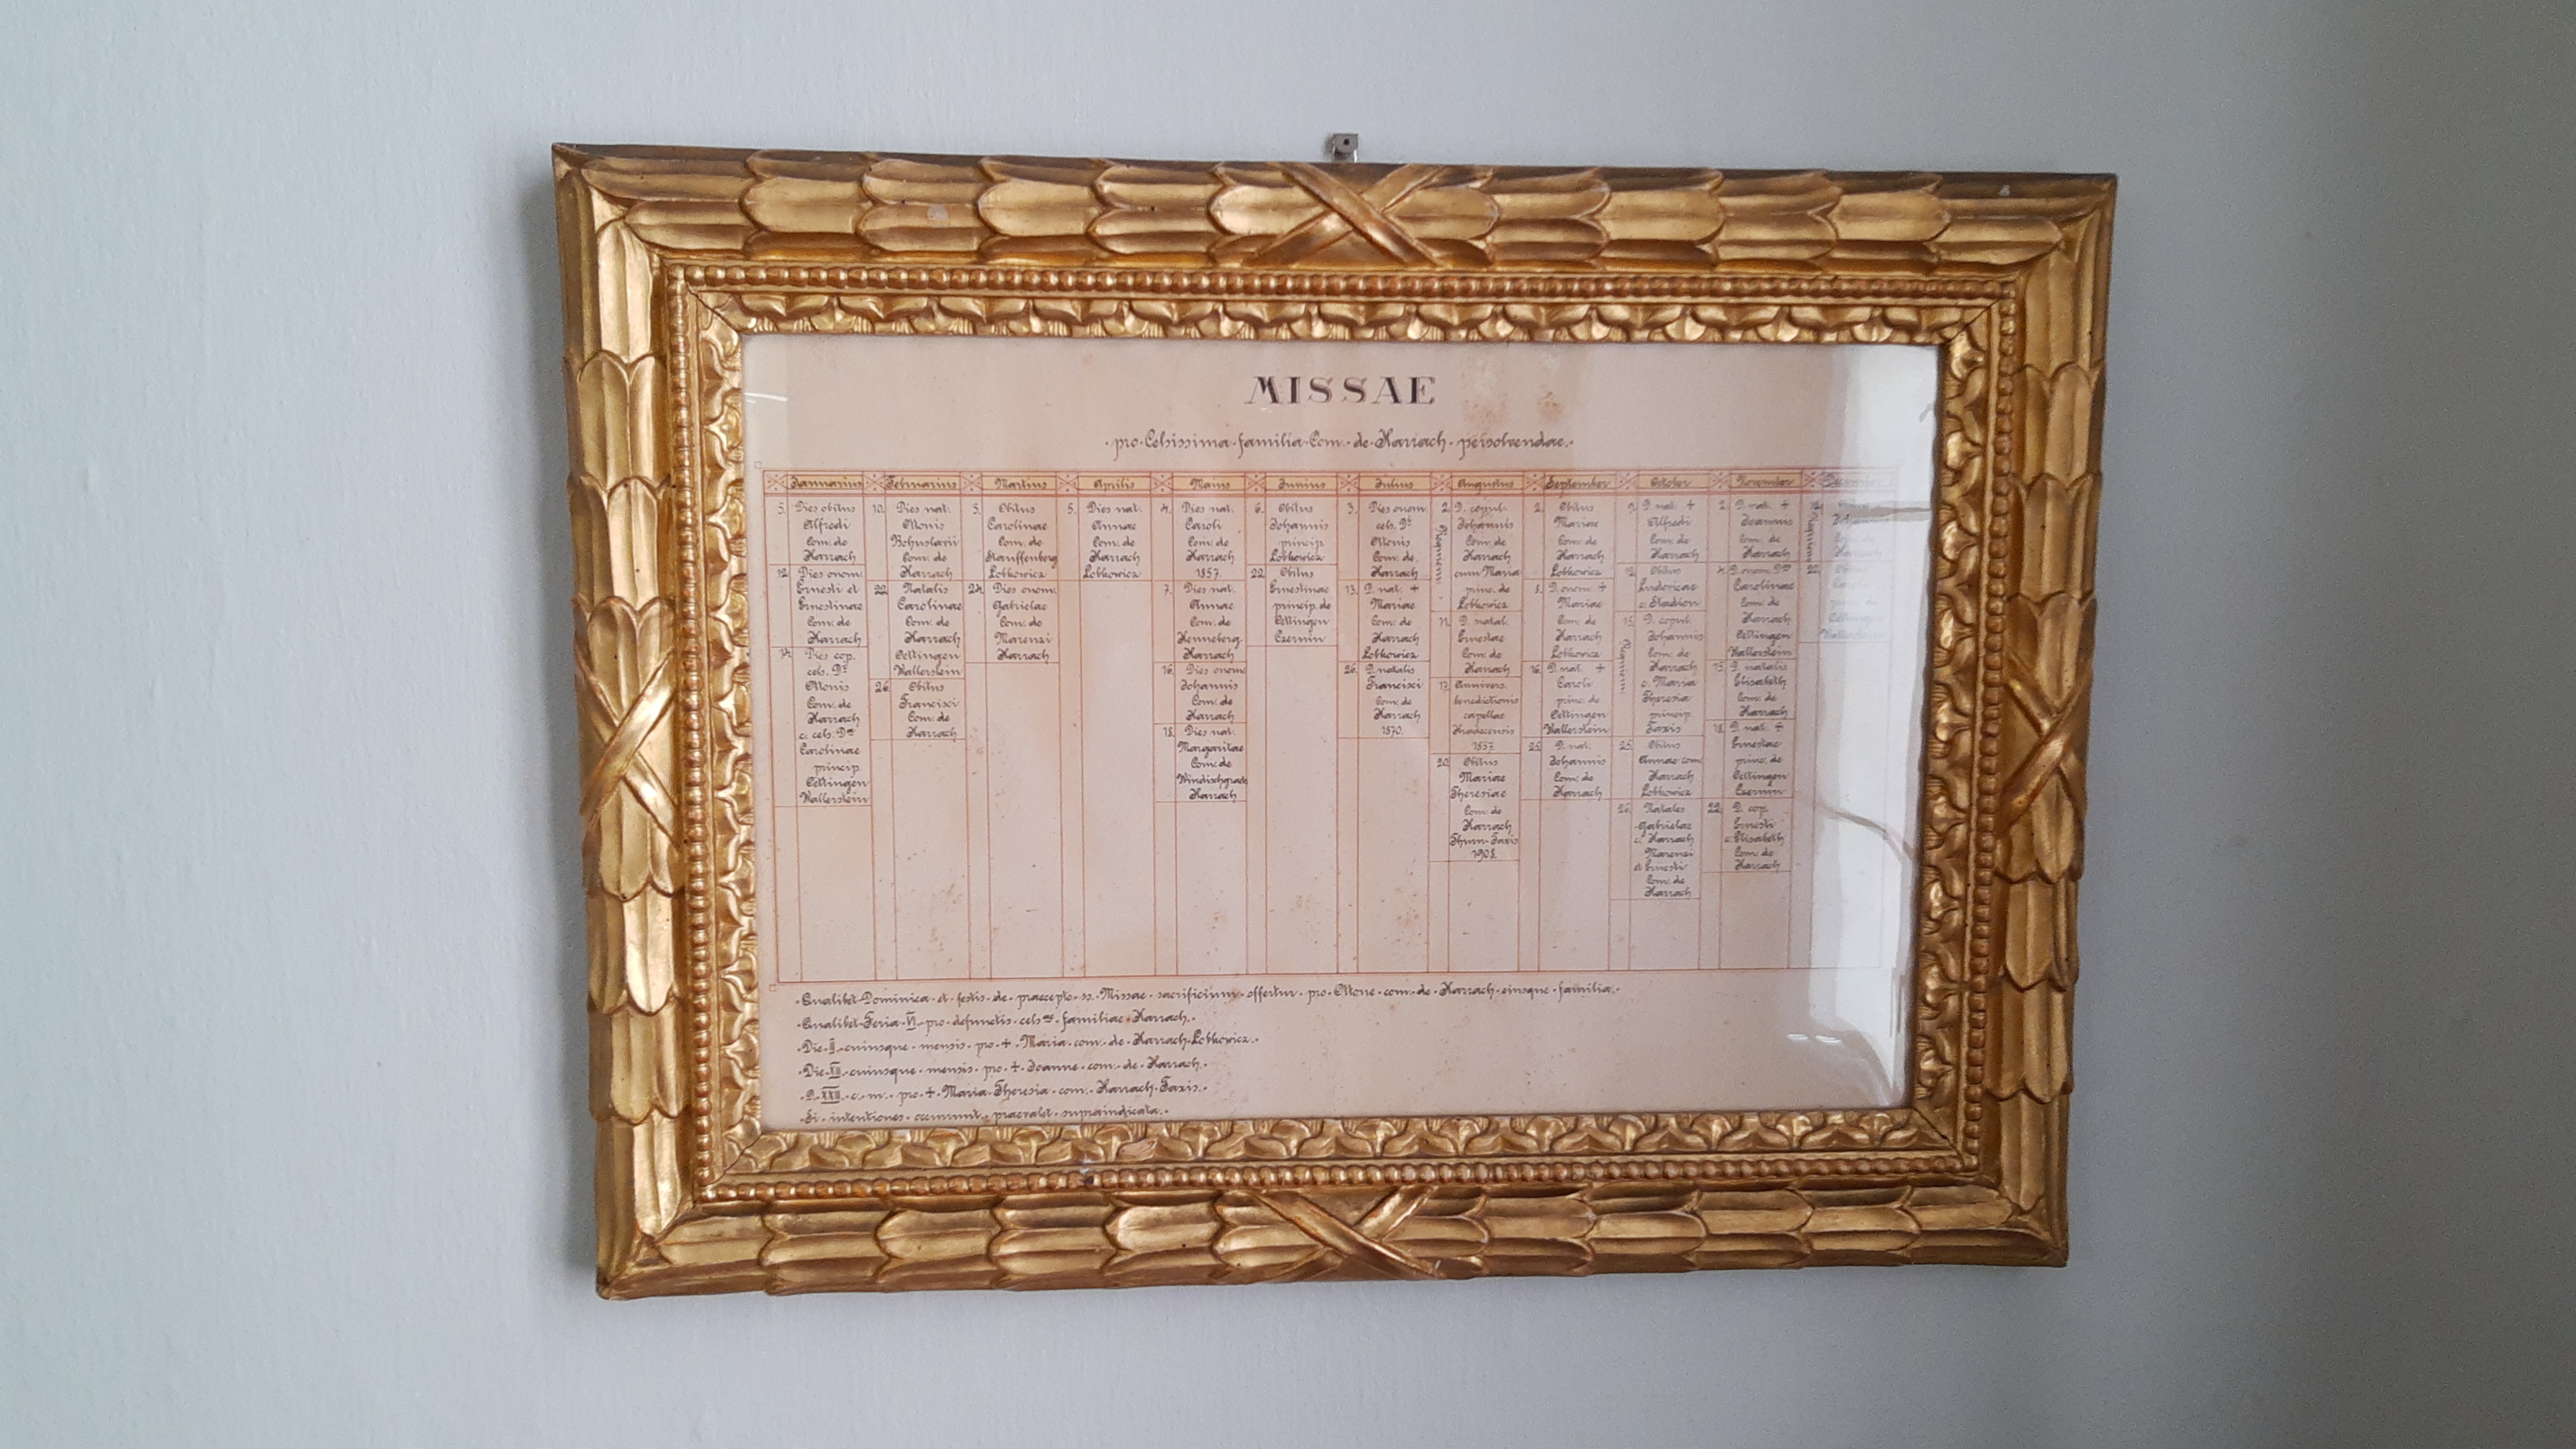 MISSAE
· pro · Celsissima · familia · Com. · de · Harrach · persolvendae. ·
Januarius
5. Dies obitus
Alfredi
Com. de
Harrach
12. Dies onom.
Ernesti et
Ernestinae
Com. de
Harrach
14. Dies cop.
cels. Di
Ottonis
Com. de
Harrach
c. cels. Da
Carolinae
princip.
Oettingen
Wallerstein
Februarius
10. Dies nat.
Ottonis
Bohuslavii
Com. de
Harrach
22. Natalis
Carolinae
Com. de
Harrach
Oettingen
Wallerstein
26. Obitus
Francisci
Com. de
Harrach
Martius
3. Obitus
Carolinae
Com. de
Stauffenberg
Lobkowicz
24. Dies onom.
Gabrielae
Com. de
Marenzi
Harrach
Aprilis
5. Dies nat.
Annae
Com. de
Harrach
Lobkowicz
Maius
4. Dies nat.
Caroli
Com. de
Harrach
1857.
7. Dies nat.
Annae
Com. de
Henneberg
Harrach
16. Dies onom.
Johannis
Com. de
Harrach
18. Dies nat.
Margaritae
Com. de
Windischgraetz
Harrach
Junius
6. Obitus
Johannis
princip.
Lobkowicz
22. Obitus
Ernestinae
princip. de
Oettingen
Czernin
Julius
3. Dies onom.
cels. Di
Ottonis
Com. de
Harrach
13. D. nat. +
Mariae
Com. de
Harrach
Lobkowicz
26. D. natalis
Francisci
Com. de
Harrach
1870.
Augustus
2. D. copul.
Johannis
Com. de
Harrach
cum Maria
princ. de
Lobkowicz
Requiem
11. D. natal.
Ernestae
Com. de
Harrach
17. Annivers.
benedictionis
capellae
Hradecensis
1857.
20. Obitus
Mariae
Theresiae
Com. de
Harrach
Thurn-Taxis
1908.
September
2. Obitus
Mariae
Com. de
Harrach
Lobkowicz
8. D. onom. +
Mariae
Com. de
Harrach
16. D. nat. +
Caroli
princ. de
Oettingen
Wallerstein
25. D. nat.
Johannis
Com. de
Harrach
October
9. D. nat. +
Alfredi
Com. de
Harrach
12. Obitus
Ludovicae
c. Stadion
15. D. copul.
Johannis
Com. de
Harrach
c. Maria
Theresia
princip.
Taxis
Requiem
25. Obitus
Annae com
Harrach
Lobkowicz
Natales
Gabrielae
c. Harrach
Marenzi
et Ernesti
Com. de
Harrach
November
2. D. nat. +
Joannis
Com. de
Harrach
4. D. onom. Dae
Carolinae
Com. de
Harrach
Oettingen
Wallerstein
15. D. natalis
Elisabeth
Com. de
Harrach
18. D. nat. +
Ernestae
princ. de
Oettingen
Czernin
22. D. cop.
Ernesti
c. Elisabeth
Com. de
Harrach
December
Requiem
Wallerstein
· Qualibet · Dominica · et · festis · de · praecepto · ss. · Missae · sacrificium · offertur · pro · Ottone · com. · de · Harrach · eiusque · familia. ·
· Qualibet · Feria · VI · pro · defunctis · celsae · familiae · Harrach. ·
· Die · II · cuiusque · mensis · pro · + · Maria · com. · de · Harrach · Lobkowicz. ·
· Die · XII · cuiusque · mensis · pro · + · Joanne · com. · de · Harrach. ·
· D. · XXII · c. · m. · pro · + · Maria · Theresia · com. · Harrach · Taxis. ·
· Si · intentiones · occurrunt · praevalet · supraindicata. ·